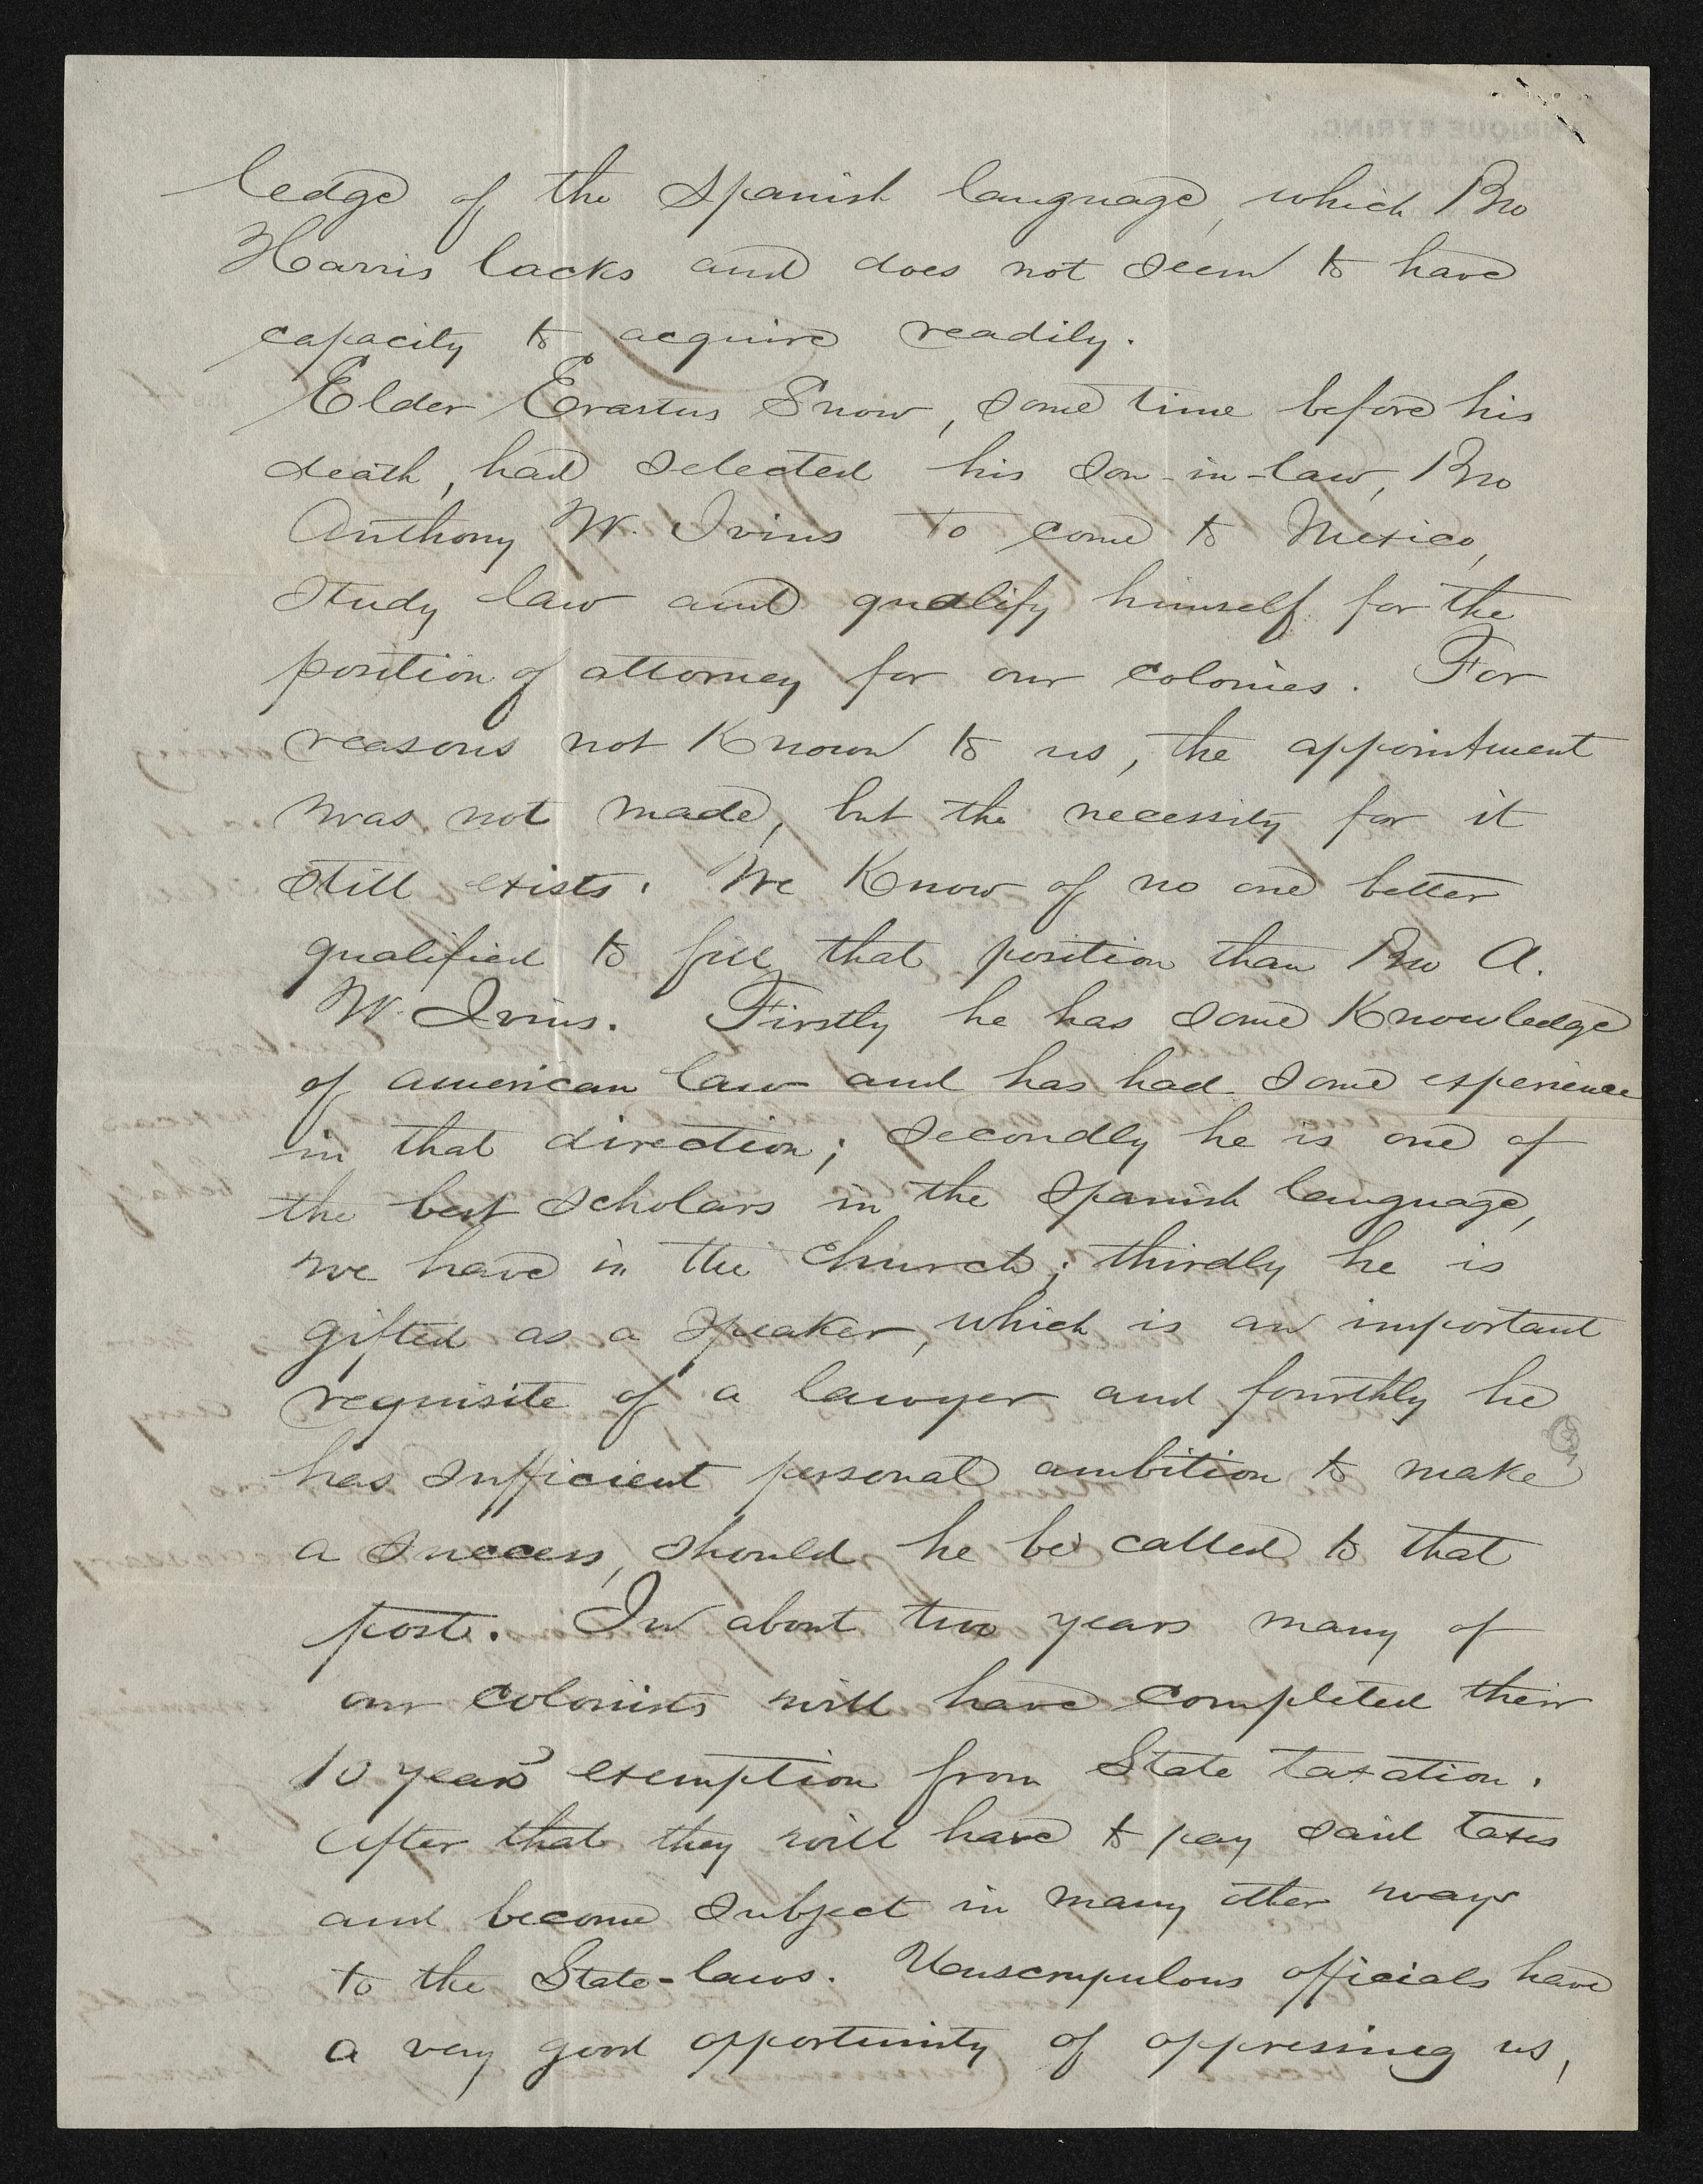 ledge of the Spanish language, which Bro
Harris lacks and does not seem to have
capacity to acquire readily.
Elder Erastus Snow, some time before his
death, had selected his son-in-law, Bro
Anthony W. Ivins to come to Mexico,
study law and qualify himself for the
position of attorney for our colonies. For
reasons not known to us, the appointment
was not made, but the necessity for it
still exists. We know of no one better
qualified to fill that position than Bro A.
W. Ivins. Firstly he has some knowledge
of american law and has had some experience
in that direction; secondly he is one of
the best scholars in the Spanish language,
we have in the Church; thirdly he is
gifted as a speaker, which is an important
requisite of a lawyer and fourthly he
has sufficient personal ambition to make
a success, should he be called to that
post. In about two years many of
our colonists will have completed their
10 years' exemption from State taxation.
After that they will have to pay said taxes
and become subject in many other ways
to the State-laws. Unscrupulous officials have
a very good opportunity of oppressing us,